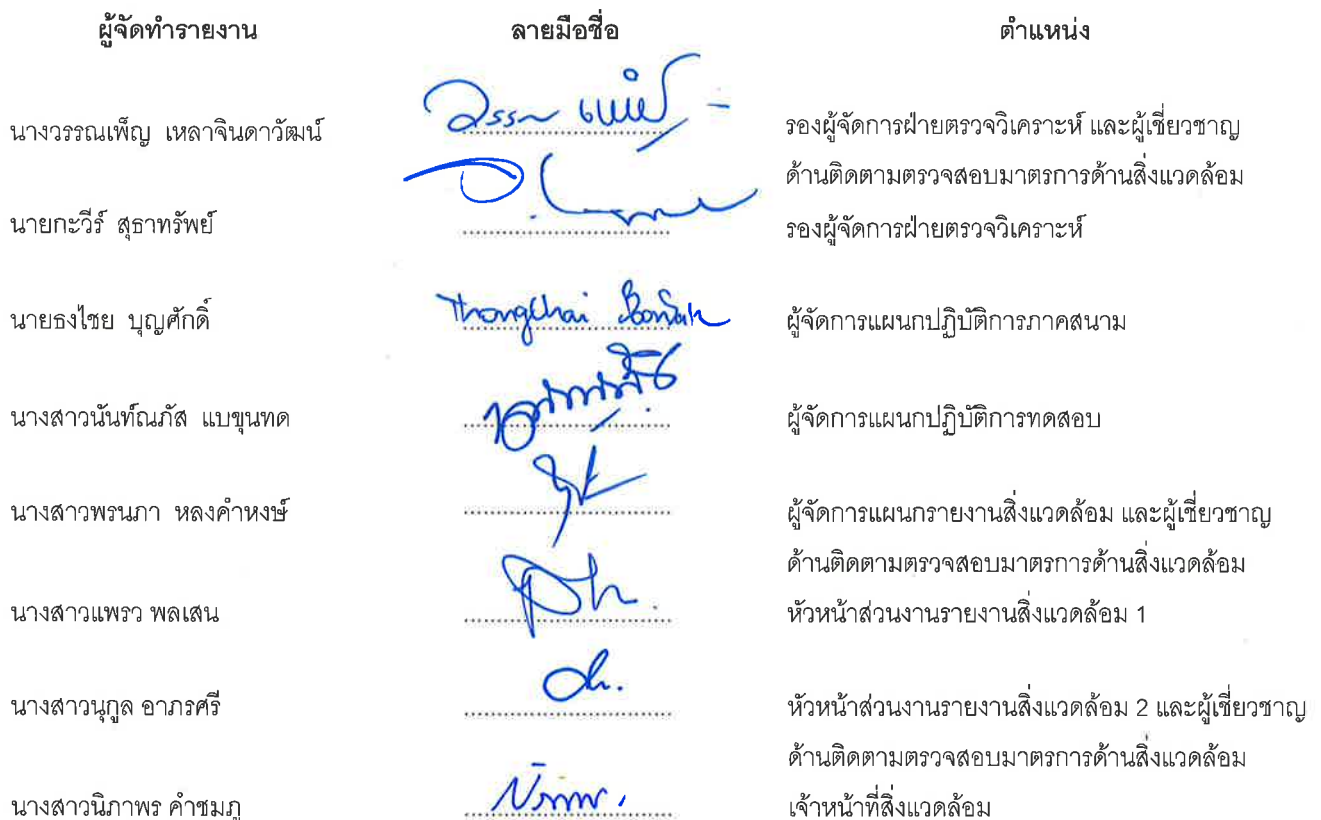 ผู้จัดทำรายงาน ลายมือชื่อ ตำแหน่ง
นางวรรณเพ็ญ เหลาจินดาวัฒน์ วรรณเพ็ญ รองผู้จัดการฝ่ายตรวจวิเคราะห์ และผู้เชี่ยวชาญ
ด้านติดตามตรวจสอบมาตรการด้านสิ่งแวดล้อม
นายกะวีร์ สุธาทรัพย์ รองผู้จัดการฝ่ายตรวจวิเคราะห์
นายธงไชย บุญศักดิ์ Thongchai Boonsak ผู้จัดการแผนกปฏิบัติการภาคสนาม
นางสาวนันท์ณภัส แบขุนทด ผู้จัดการแผนกปฏิบัติการทดสอบ
นางสาวพรนภา หลงคำหงษ์ ผู้จัดการแผนกรายงานสิ่งแวดล้อม และผู้เชี่ยวชาญ
ด้านติดตามตรวจสอบมาตรการด้านสิ่งแวดล้อม
นางสาวแพรว พลเสน หัวหน้าส่วนงานรายงานสิ่งแวดล้อม 1
นางสาวนุกูล อาภรศรี หัวหน้าส่วนงานรายงานสิ่งแวดล้อม 2 และผู้เชี่ยวชาญ
ด้านติดตามตรวจสอบมาตรการด้านสิ่งแวดล้อม
นางสาวนิภาพร คำชมภู เจ้าหน้าที่สิ่งแวดล้อม